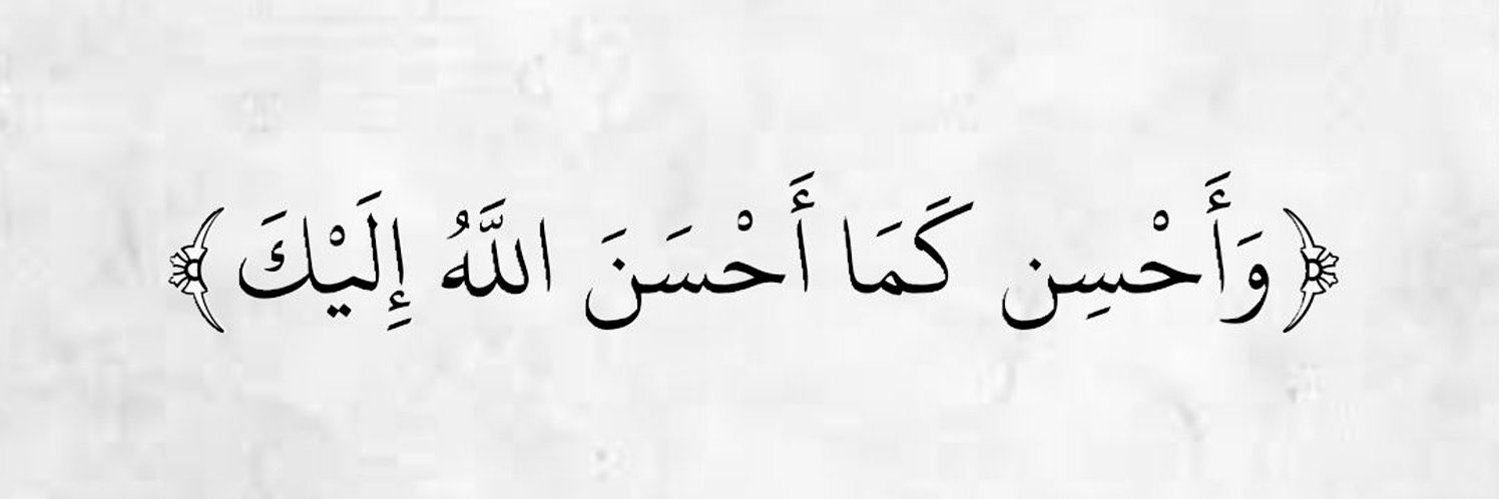 ﴿وَأَحْسِن كَمَا أَحْسَنَ اللَّهُ إِلَيْكَ﴾